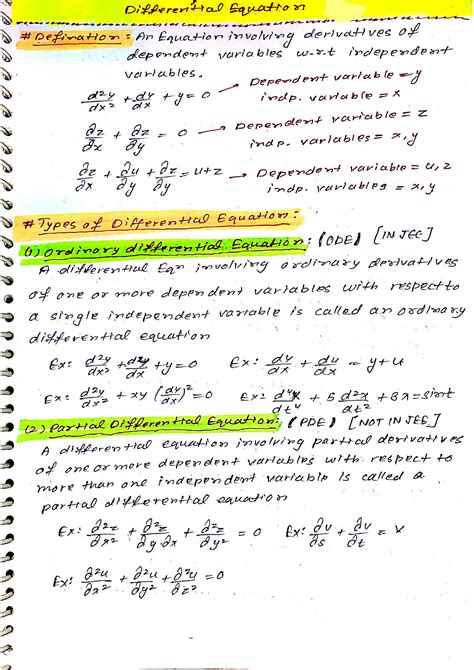 Differential Equation
# Defination : An Equation involving derivatives of
dependent variables w.r.t independent
variables.
d²y/dx² + dy/dx + y = 0 → Dependent variable = y
indp. variable = x
∂z/∂x + ∂z/∂y = 0 → Dependent variable = z
indp. variables = x, y
∂z/∂x + ∂u/∂y + ∂z/∂y = u+z → Dependent variable = u, z
indp. variables = x, y
# Types of Differential Equation :
(1) Ordinary differential Equation : (ODE) [IN JEE]
A differential Eqn involving ordinary derivatives
of one or more dependent variables with respect to
a single independent variable is called an ordinary
differential equation
Ex: d²y/dx² + dy/dx + y = 0 Ex: dy/dx + du/dx = y+u
Ex: d²y/dx² + xy (dy/dx)² = 0 Ex: d⁴x/dt⁴ + 5 d²x/dt² + 3x = sint
(2) Partial Differential Equation : (PDE) [NOT IN JEE]
A differential equation involving partial derivatives
of one or more dependent variables with respect to
more than one independent variable is called a
partial differential equation
Ex: ∂²z/∂x² + ∂²z/∂y∂x + ∂²z/∂y² = 0 Ex: ∂v/∂s + ∂v/∂t = x
Ex: ∂²u/∂x² + ∂²u/∂y² + ∂²u/∂z² = 0